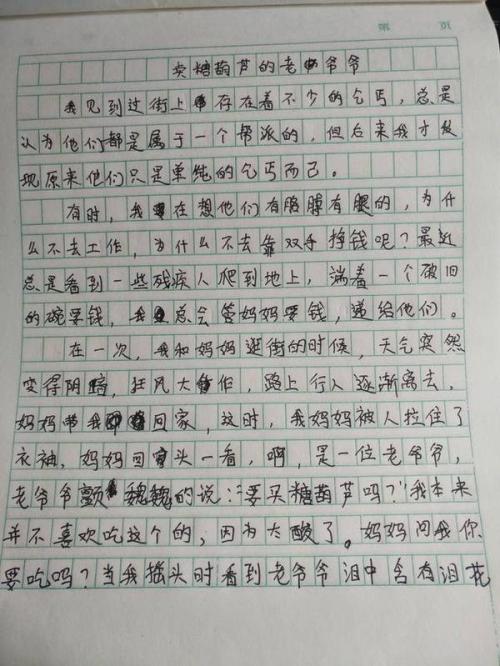 第 页
卖糖葫芦的老爷爷
我见到过街上存在着不少的乞丐，总是
认为他们都是属于一个帮派的，但后来我才发
现原来他们只是单纯的乞丐而已。
有时，我在想他们有胳膊有腿的，为什
么不去工作，为什么不去靠双手挣钱呢？最近
总是看到一些残疾人爬到地上，端着一个破旧
的碗要钱，我总会管妈妈要钱，递给他们。
在一次，我和妈妈逛街的时候，天气突然
变得阴暗，狂风大作，路上行人逐渐离去，
妈妈带我回家，这时，我妈妈被人拉住了
衣袖，妈妈回头一看，啊，是一位老爷爷，
老爷爷颤魏魏的说：“要买糖葫芦吗？”我本来
并不喜欢吃这个的，因为太酸了。妈妈问我你
要吃吗？当我摇头时看到老爷爷泪中含有泪花